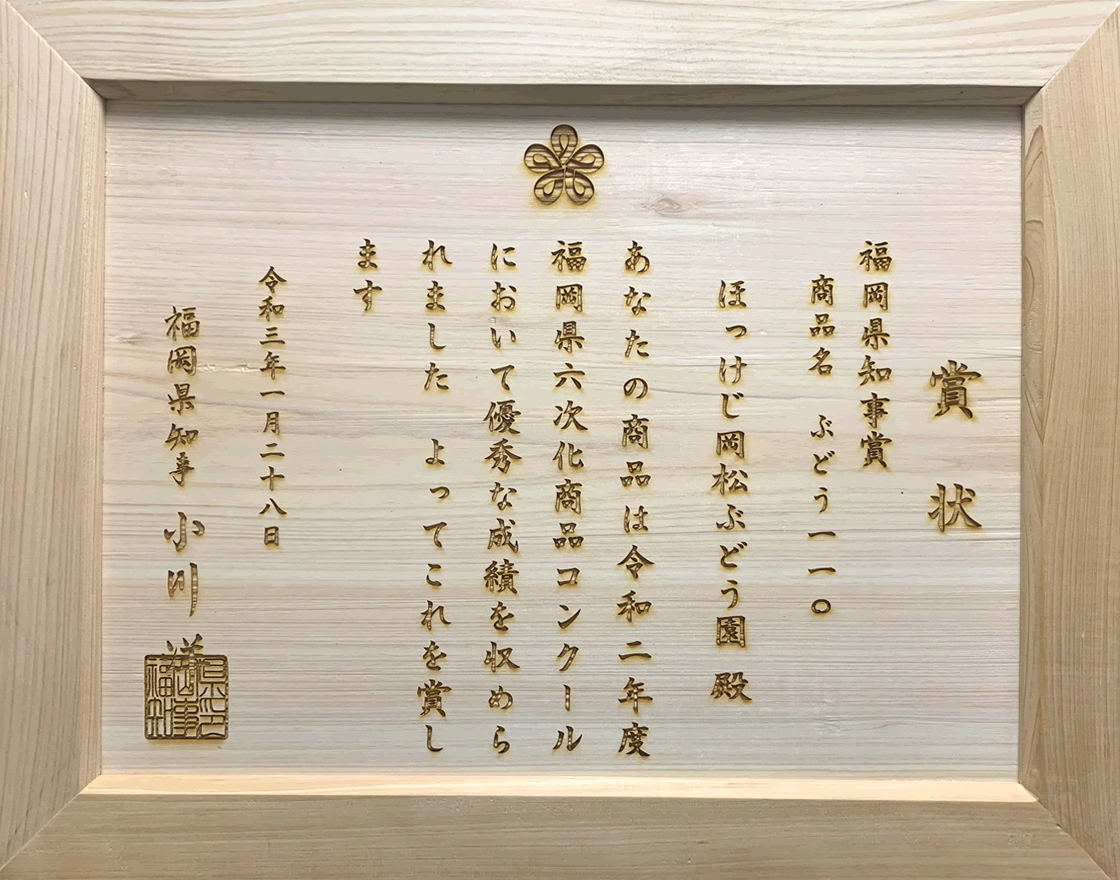 賞状
福岡県知事賞
商品名 ぶどう一一〇
ほっけじ岡松ぶどう園 殿
あなたの商品は令和二年度
福岡県六次化商品コンクール
において優秀な成績を収めら
れました よってこれを賞し
ます
令和三年一月二十八日
福岡県知事 小川 洋